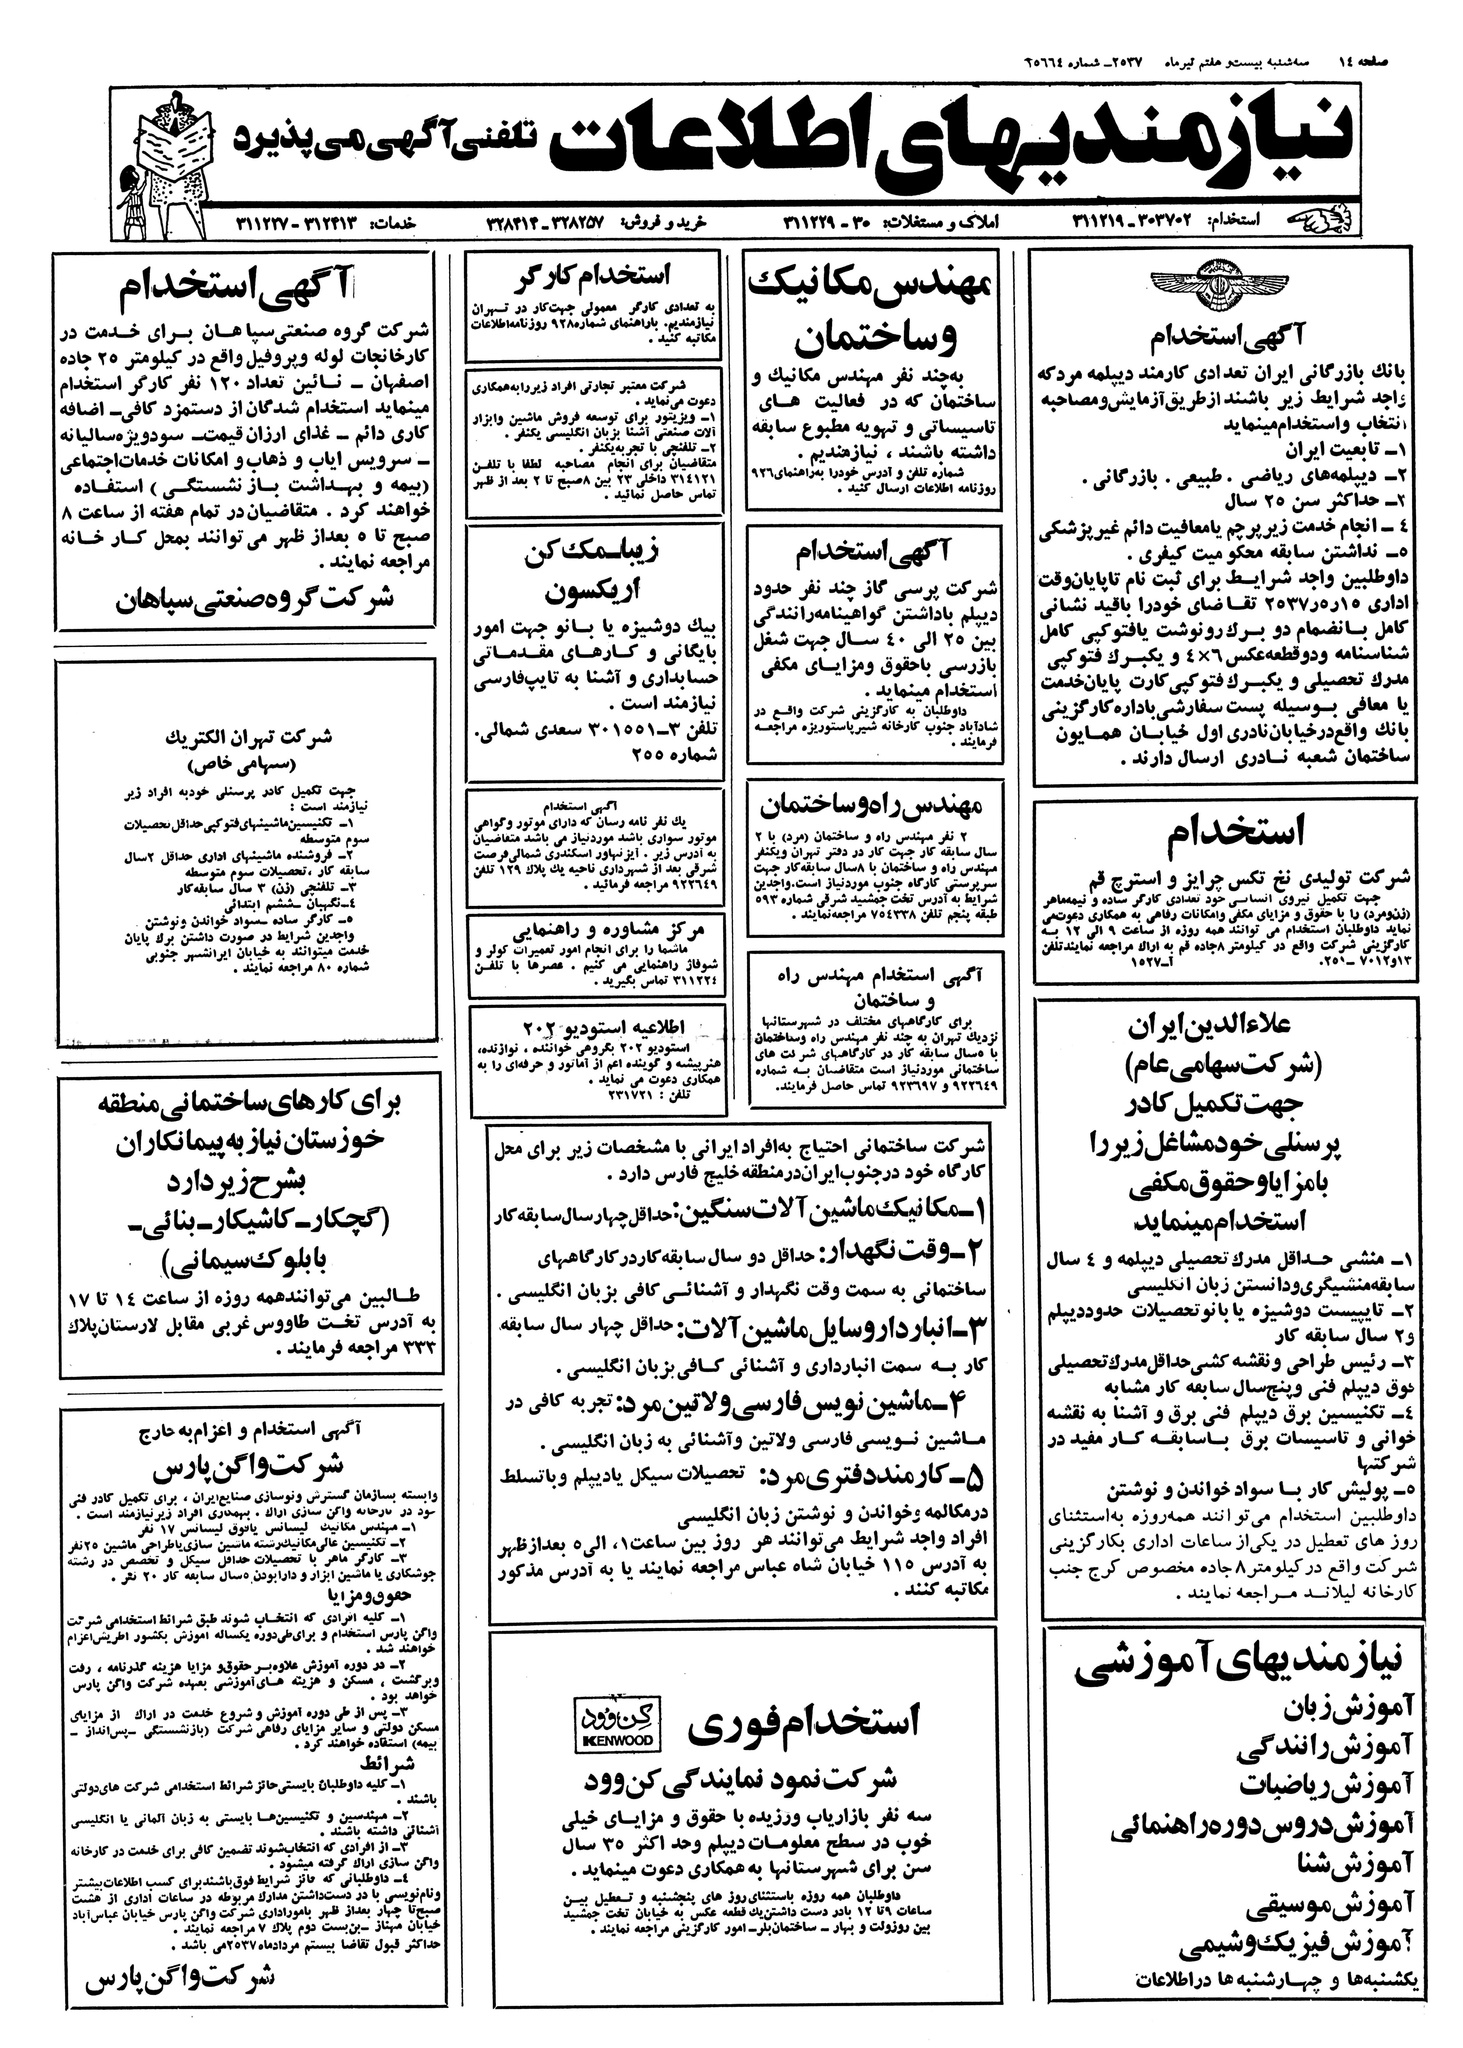 صفحه ۱٤ سه‌شنبه بیست‌و هفتم تیرماه ۲۵۳۷ــ شماره ۲۵٦٦٤
نیازمندیهای اطلاعات تلفنی آگهی می‌پذیرد
استخدام: ۳۰۳۷۰۲ ــ ۳۱۱۲۱۹ املاک و مستغلات: ۳۰ ــ ۳۱۱۲۲۹ خرید و فروش: ۳۲۸۲۵۷ــ ۳۲۸۴۱۴ خدمات: ۳۱۲۴۱۳ ــ ۳۱۱۲۲۷
آگهی استخدام
بانك بازرگانی ایران تعدادی کارمند دیپلمه مردکه
واجد شرایط زیر باشند ازطریق آزمایش ومصاحبه
انتخاب واستخدام مینماید
۱ــ تابعیت ایران
۲ــ دیپلمه‌های ریاضی . طبیعی . بازرگانی .
۳ــ حداکثر سن ۲۵ سال
٤ ــ انجام خدمت زیرپرچم یامعافیت دائم غیرپزشکی
۵ــ نداشتن سابقه محکومیت کیفری .
داوطلبین واجد شرایط برای ثبت نام تاپایان‌وقت
اداری ۲۵۳۷٫۵٫۱۵ تقاضای خودرا باقید نشانی
کامل بانضمام دو برگ رونوشت یافتوکپی کامل
شناسنامه ودوقطعه‌عکس ٦×٤ و یکبرگ فتوکپی
مدرك تحصیلی و یکبرگ فتوکپی کارت پایان‌خدمت
یا معافی بوسیله پست سفارشی باداره‌کارگزینی
بانك واقع‌درخیابان‌نادری اول خیابان همایون
ساختمان شعبه نادری ارسال دارند .
استخدام
شرکت تولیدی نخ تکس چرایز و استرچ قم
جهت تکمیل نیروی انسانی خود تعدادی کارگر ساده و نیمه‌ماهر
(زن‌ومرد) را با حقوق و مزایای مکفی وامکانات رفاهی به همکاری دعوت‌می
نماید داوطلبان استخدام می توانند همه روزه از ساعت ۹ الی ۱۲ به
کارگزینی شرکت واقع در کیلومتر ۸جاده قم به اراك مراجعه نمایندتلفن
۱۳و۷۰۱۲ ــ۲۵۱. آــ۱۵۲۷
علاءالدین ایران
(شرکت سهامی عام)
جهت تکمیل کادر
پرسنلی خود مشاغل زیر را
با مزایا و حقوق مکفی
استخدام مینماید
۱ــ منشی حداقل مدرك تحصیلی دیپلمه و ٤ سال
سابقه منشیگری ودانستن زبان انگلیسی
۲ــ تایپیست دوشیزه یا بانو تحصیلات حدوددیپلم
و۲ سال سابقه کار
۳ــ رئیس طراحی و نقشه کشی حداقل مدرك تحصیلی
فوق دیپلم فنی وپنج‌سال سابقه کار مشابه
٤ــ تکنیسین برق دیپلم فنی برق و آشنا به نقشه
خوانی و تاسیسات برق باسابقه کار مفید در
شرکتها
۵ــ پولیش کار با سواد خواندن و نوشتن
داوطلبین استخدام می‌توانند همه‌روزه به‌استثنای
روز های تعطیل در یکی‌از ساعات اداری بکارگزینی
شرکت واقع در کیلومتر ۸ جاده مخصوص کرج جنب
کارخانه لیلاند مراجعه نمایند .
نیازمندیهای آموزشی
آموزش زبان
آموزش رانندگی
آموزش ریاضیات
آموزش دروس دوره راهنمائی
آموزش شنا
آموزش موسیقی
آموزش فیزیك و شیمی
یکشنبه‌ها و چهارشنبه ها در اطلاعات
مهندس مکانیك
و ساختمان
به‌چند نفر مهندس مکانیك و
ساختمان که در فعالیت های
تاسیساتی و تهویه مطبوع سابقه
داشته باشند ، نیازمندیم .
شماره تلفن و آدرس خودرا به‌راهنمای۹۲٦
روزنامه اطلاعات ارسال کنید .
آگهی استخدام
شرکت پرسی گاز چند نفر حدود
دیپلم باداشتن گواهینامه‌رانندگی
بین ۲۵ الی ۴۰ سال جهت شغل
بازرسی باحقوق ومزایای مکفی
استخدام مینماید .
داوطلبان به کارگزینی شرکت واقع در
شادآباد جنوب کارخانه شیرپاستوریزه مراجعه
فرمایند .
مهندس راه و ساختمان
۲ نفر مهندس راه و ساختمان (مرد) با ۲
سال سابقه کار جهت کار در دفتر تهران ویکنفر
مهندس راه و ساختمان با ۸سال سابقه‌کار جهت
سرپرستی کارگاه جنوب موردنیاز است.واجدین
شرایط به آدرس تخت جمشید شرقی شماره ۵۹۳
طبقه پنجم تلفن ۷۵۴۳۳۸ مراجعه‌نمایند .
آگهی استخدام مهندس راه
و ساختمان
برای کارگاههای مختلف در شهرستانها
نزدیك تهران به چند نفر مهندس راه وساختمان
با ۵سال سابقه کار در کارگاههای شرکت های
ساختمانی موردنیاز است متقاضیان به شماره
۹۲۲٦۴۹ و ۹۲۳٦۹۷ تماس حاصل فرمایند.
استخدام کارگر
به تعدادی کارگر معمولی جهت‌کار در تهران
نیازمندیم. باراهنمای شماره۹۲۸ روزنامه‌اطلاعات
مکاتبه کنید .
شرکت معتبر تجارتی افراد زیررابه‌همکاری
دعوت می‌نماید .
۱ــ ویزیتور برای توسعه فروش ماشین وابزار
آلات صنعتی آشنا بزبان انگلیسی یکنفر .
۲ــ تلفنچی با تجربه‌یکنفر .
متقاضیان برای انجام مصاحبه لطفا با تلفن
۳۱۴۱۲۱ داخلی ۲۳ بین ۸صبح تا ۲ بعد از ظهر
تماس حاصل نمائید .
زیباــ‌مك کن
اریکسون
بیك دوشیزه یا بانو جهت امور
بایگانی و کارهای مقدماتی
حسابداری و آشنا به تایپ‌فارسی
نیازمند است .
تلفن ۳ــ۳۰۱۵۵۱ سعدی شمالی.
شماره ۲۵۵
آگهی استخدام
یك نفر نامه رسان که دارای موتور وگواهی
موتور سواری باشد موردنیاز می باشد متقاضیان
به آدرس زیر . آیزنهاور اسکندری شمالی‌فرصت
شرقی بعد از شهرداری ناحیه یك پلاك ۱۲۹ تلفن
۹۲۲٦۴۹ مراجعه فرمائید .
مرکز مشاوره و راهنمایی
ماشما را برای انجام امور تعمیرات کولر و
شوفاژ راهنمایی می کنیم . عصرها با تلفن
۳۱۱۲۲۴ تماس بگیرید .
اطلاعیه استودیو ۲۰۲
استودیو ۲۰۲ بگروهی خواننده ، نوازنده،
هنرپیشه و گوینده اعم از آماتور و حرفه‌ای را به
همکاری دعوت می نماید .
تلفن : ۲۳۱۷۲۱
شرکت ساختمانی احتیاج به‌افراد ایرانی با مشخصات زیر برای محل
کارگاه خود در جنوب ایران در منطقه خلیج فارس دارد .
۱ــ مکانیك ماشین آلات سنگین: حداقل چهار سال سابقه کار
۲ــ وقت نگهدار: حداقل دو سال سابقه کار در کارگاههای
ساختمانی به سمت وقت نگهدار و آشنائی کافی بزبان انگلیسی .
۳ــ انباردار وسایل ماشین آلات: حداقل چهار سال سابقه
کار به سمت انبارداری و آشنائی کافی بزبان انگلیسی .
۴ــ ماشین نویس فارسی و لاتین مرد: تجربه کافی در
ماشین نویسی فارسی ولاتین وآشنائی به زبان انگلیسی .
۵ــ کارمند دفتری مرد: تحصیلات سیکل یادیپلم و باتسلط
درمکالمه وخواندن و نوشتن زبان انگلیسی
افراد واجد شرایط می‌توانند هر روز بین ساعت۱، الی۵ بعدازظهر
به آدرس ۱۱۵ خیابان شاه عباس مراجعه نمایند یا به آدرس مذکور
مکاتبه کنند .
کن وود
KENWOOD
استخدام فوری
شرکت نمود نمایندگی کن وود
سه نفر بازاریاب ورزیده با حقوق و مزایای خیلی
خوب در سطح معلومات دیپلم وحد اکثر ۳۵ سال
سن برای شهرستانها به همکاری دعوت مینماید .
داوطلبان همه روزه باستثنای روز های پنجشنبه و تعطیل بین
ساعات ۹تا ۱۲ بادر دست داشتن‌یك قطعه عکس به خیابان تخت جمشید
بین روزولت و بهار ــ ساختمان‌بلرــ امور کارگزینی مراجعه نمایند .
آگهی استخدام
شرکت گروه صنعتی سپاهان برای خدمت در
کارخانجات لوله وپروفیل واقع در کیلومتر ۲۵ جاده
اصفهان ــ نائین تعداد ۱۲۰ نفر کارگر استخدام
مینماید استخدام شدگان از دستمزد کافی ــ اضافه
کاری دائم ــ غذای ارزان قیمت ــ سودویژه‌سالیانه
ــ سرویس ایاب و ذهاب و امکانات خدمات‌اجتماعی
(بیمه و بهداشت باز نشستگی ) استفاده
خواهند کرد . متقاضیان در تمام هفته از ساعت ۸
صبح تا ۵ بعداز ظهر می توانند بمحل کار خانه
مراجعه نمایند .
شرکت گروه صنعتی سپاهان
شرکت تهران الکتریك
(سهامی خاص)
جهت تکمیل کادر پرسنلی خودبه افراد زیر
نیازمند است :
۱ــ تکنیسین‌ماشینهای فتوکپی‌حداقل‌تحصیلات
سوم متوسطه
۲ــ فروشنده ماشینهای اداری حداقل ۲سال
سابقه کار ، تحصیلات سوم متوسطه
۳ــ تلفنچی (زن) ۳ سال سابقه‌کار
۴ــنگهبان ــششم ابتدائی
۵ــ کارگر ساده ــسواد خواندن ونوشتن
واجدین شرایط در صورت داشتن برگ پایان
خدمت میتوانند به خیابان ایرانشهر جنوبی
شماره ۸۰ مراجعه نمایند .
برای کارهای ساختمانی منطقه
خوزستان نیاز به پیمانکاران
بشرح زیر دارد
(گچکار ــ کاشیکار ــ بنائی ــ
با بلوك سیمانی)
طالبین می‌توانندهمه روزه از ساعت ۱۴ تا ۱۷
به آدرس تخت طاووس غربی مقابل لارستان‌پلاك
۳۳۳ مراجعه فرمایند .
آگهی استخدام و اعزام به خارج
شرکت واگن پارس
وابسته بسازمان گسترش ونوسازی صنایع‌ایران ، برای تکمیل کادر فنی
خود در کارخانه واگن سازی اراك . بهمکاری افراد زیرنیازمند است .
۱ــ مهندس مکانیك لیسانس یافوق لیسانس ۱۷ نفر
۲ــ تکنیسین عالی‌مکانیك‌رشته ماشین سازی‌یاطراحی ماشین ۲۵نفر
۳ــ کارگر ماهر با تحصیلات حداقل سیکل و تخصص در رشته
جوشکاری یا ماشین ابزار و دارابودن ۵سال سابقه کار ۲۰ نفر .
حقوق و مزایا
۱ــ کلیه افرادی که انتخاب شوند طبق شرائط استخدامی شرکت
واگن پارس استخدام و برای‌طی‌دوره یکساله آموزش بکشور اطریش‌اعزام
خواهند شد .
۲ــ در دوره آموزش علاوه‌بر حقوق‌و مزایا هزینه گذرنامه ، رفت
وبرگشت ، مسکن و هزینه های‌آموزشی بعهده شرکت واگن پارس
خواهد بود .
۳ــ پس از طی دوره آموزش و شروع خدمت در اراك از مزایای
مسکن دولتی و سایر مزایای رفاهی شرکت (بازنشستگی ــپس‌انداز ــ
بیمه) استفاده خواهند کرد .
شرائط
۱ــ کلیه داوطلبان بایستی حائز شرائط استخدامی شرکت های‌دولتی
باشند .
۲ــ مهندسین و تکنیسین‌ها بایستی به زبان آلمانی یا انگلیسی
آشنائی داشته باشند .
۳ــ از افرادی که انتخاب‌شوند تضمین کافی برای خدمت در کارخانه
واگن سازی اراك گرفته میشود .
۴ــ داوطلبانی که حائز شرایط فوق‌باشندبرای کسب اطلاعات‌بیشتر
ونام‌نویسی با در دست‌داشتن مدارك مربوطه در ساعات اداری از هشت
صبح‌تا چهار بعداز ظهر باموراداری شرکت واگن پارس خیابان عباس‌آباد
خیابان مهناز ــبن‌بست دوم پلاك ۷ مراجعه نمایند .
حداکثر قبول تقاضا بیستم مردادماه ۲۵۳۷می باشد .
شرکت واگن پارس